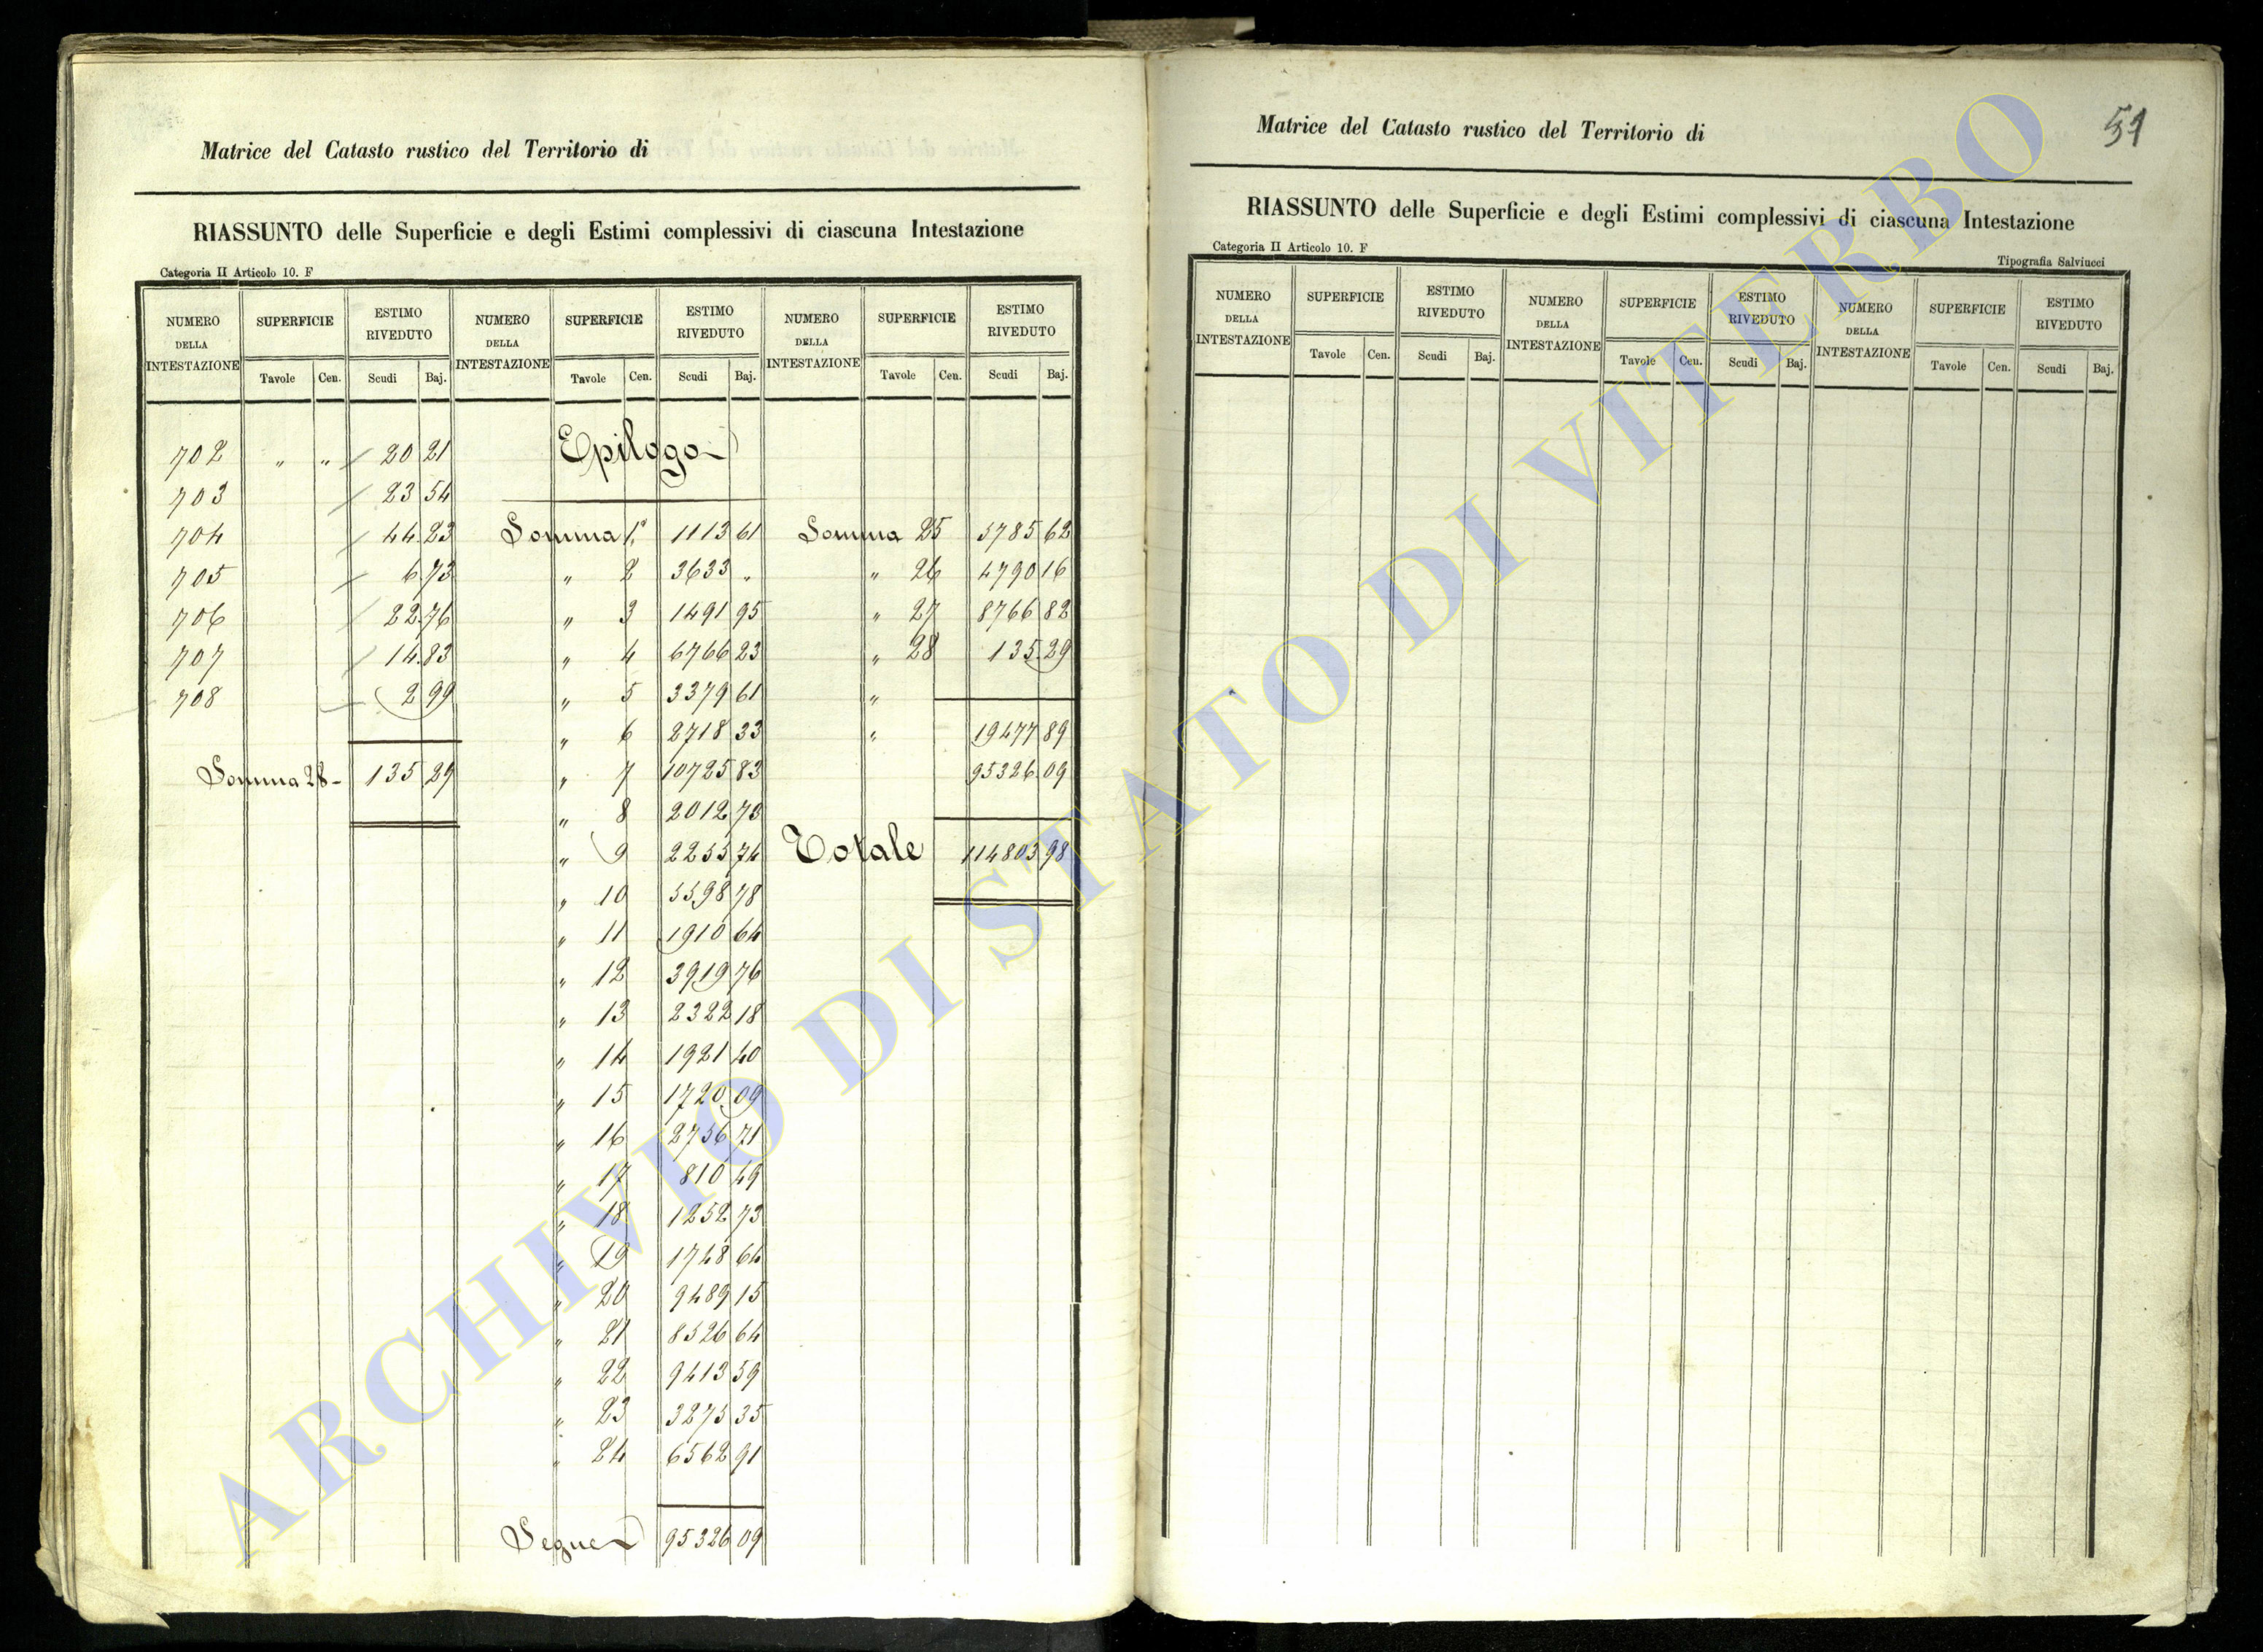 Matrice del Catasto rustico del Territorio di
RIASSUNTO delle Superficie e degli Estimi complessivi di ciascuna Intestazione
Categoria II Articolo 10. F
NUMERO DELLA INTESTAZIONE SUPERFICIE ESTIMO RIVEDUTO NUMERO DELLA INTESTAZIONE SUPERFICIE ESTIMO RIVEDUTO NUMERO DELLA INTESTAZIONE SUPERFICIE ESTIMO RIVEDUTO
Tavole Cen. Scudi Baj. Tavole Cen. Scudi Baj. Tavole Cen. Scudi Baj.
702 " " 20 21
703 23 54
704 44 23
705 6 73
706 22 76
707 14 83
708 2 99
Somma 28 - 135 29
Epilogo
Somma 1° 1113 61
" 2 3633 "
" 3 1491 95
" 4 6766 23
" 5 3379 61
" 6 2718 33
" 7 10725 83
" 8 2012 73
" 9 2255 74
" 10 5598 78
" 11 1910 64
" 12 3919 76
" 13 2322 18
" 14 1921 40
" 15 1720 09
" 16 2756 71
" 17 810 49
" 18 1252 73
" 19 1748 64
" 20 9489 15
" 21 8526 64
" 22 9413 59
" 23 3275 35
" 24 6562 91
Segue 95326 09
Somma 25 5785 62
" 26 4790 16
" 27 8766 82
" 28 135 29
"
" 19477 89
95326 09
Totale 114803 98
51
Matrice del Catasto rustico del Territorio di
RIASSUNTO delle Superficie e degli Estimi complessivi di ciascuna Intestazione
Categoria II Articolo 10. F
Tipografia Salviucci
NUMERO DELLA INTESTAZIONE SUPERFICIE ESTIMO RIVEDUTO NUMERO DELLA INTESTAZIONE SUPERFICIE ESTIMO RIVEDUTO NUMERO DELLA INTESTAZIONE SUPERFICIE ESTIMO RIVEDUTO
Tavole Cen. Scudi Baj. Tavole Cen. Scudi Baj. Tavole Cen. Scudi Baj.
ARCHIVIO DI STATO DI VITERBO